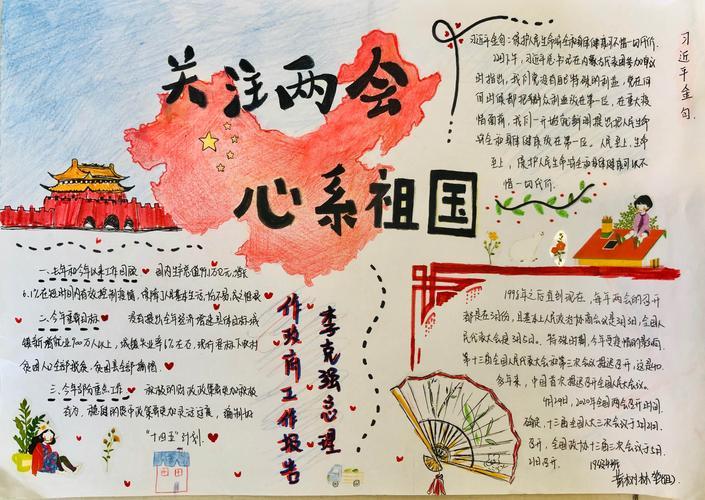 关注两会
心系祖国
习近平金句
习近平金句:保护人民生命安全和身体健康可不惜一切代价.
时指出,我们党没有自己特殊的利益,党在任何
时候都把群众利益放在第一位。在重大疫
安全和身体健康放在第一位。人民至上、生命
至上,保护人民生命安全和身体健康可以不
惜一切代价.
一、去年和今年以来工作回顾
国内生产总值99.1万亿元,增长
6.1%
二、今年主要目标
没有提出全年经济增速具体目标,城
镇新增就业900万人以上,
贫困人口全部脱贫、贫困县全部摘帽.
三、今年部分重点工作
积极的财政政策要更加积极
有为,稳健的货币政策要更加灵活适度,编制好
"十四五"计划.
李克强总理
作政府工作报告
1995年之后直到现在,每年两会的召开
都是在3月份,且基本上人民政治协商会议是3月3日,全国人
民代表大会是3月5日。特殊时期,今年受疫情的影响,
第十三届全国人民代表大会和第三次会议推迟召开,这是40
多年来,中国首次推迟召开全国人民代表大会。
4月29日,2020年全国两会召开时间
确定,十三届全国人大三次会议于5月22日
召开,全国政协十三届三次会议于5月
21日召开.